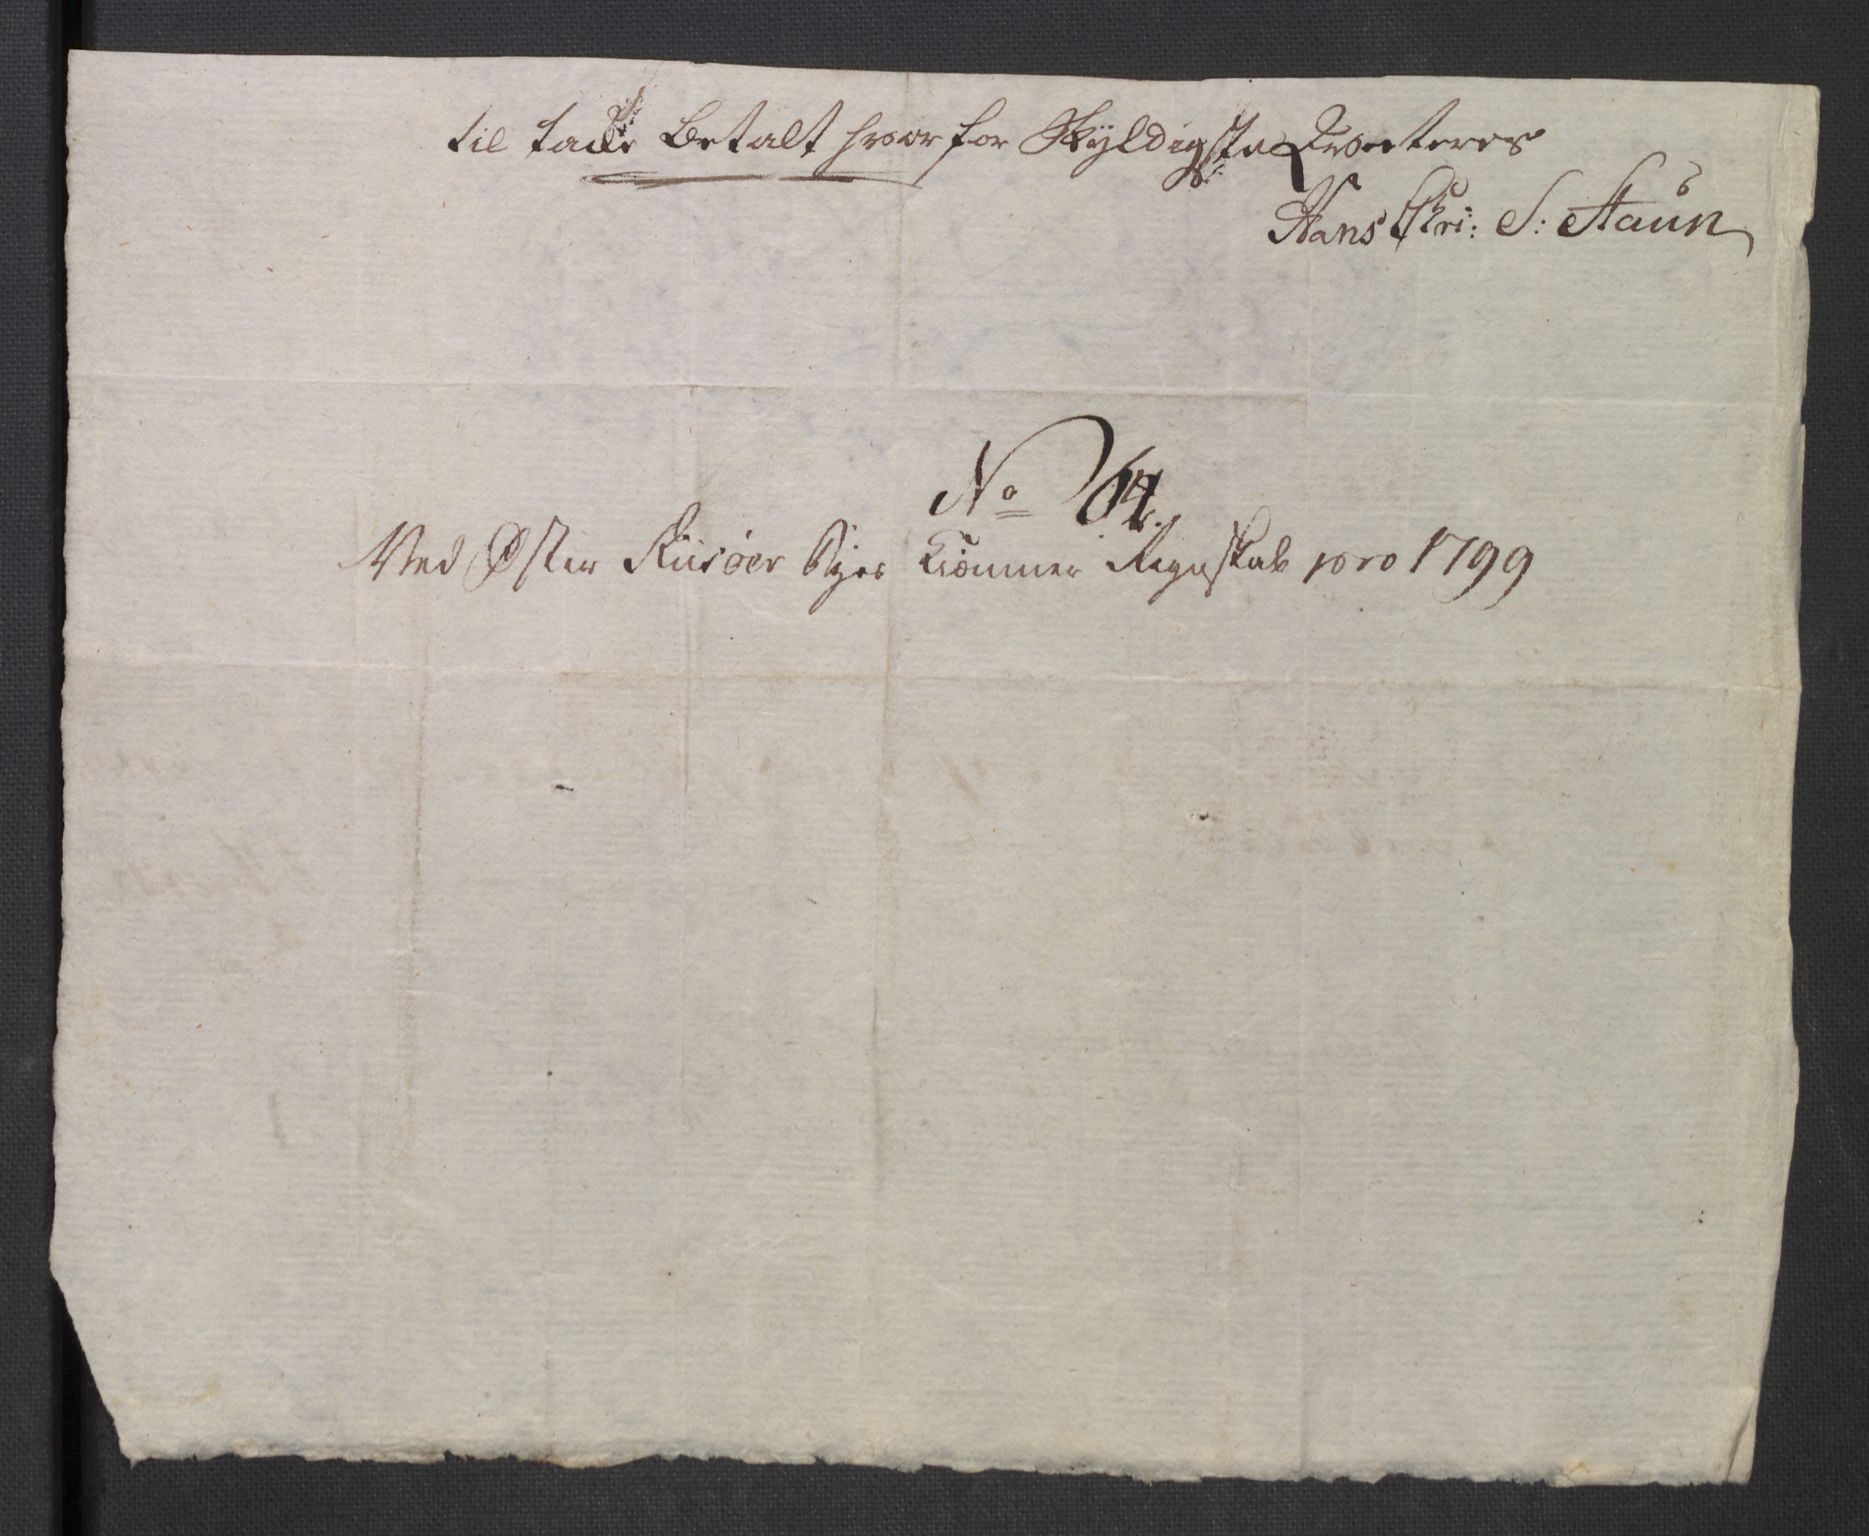 til takke Betalt hvor for Skyldigste Qviteres
Hans Chri: S: Staun
No 64.
Ved Øster Riisöer Byes Kiæmner Regnskab pro 1799